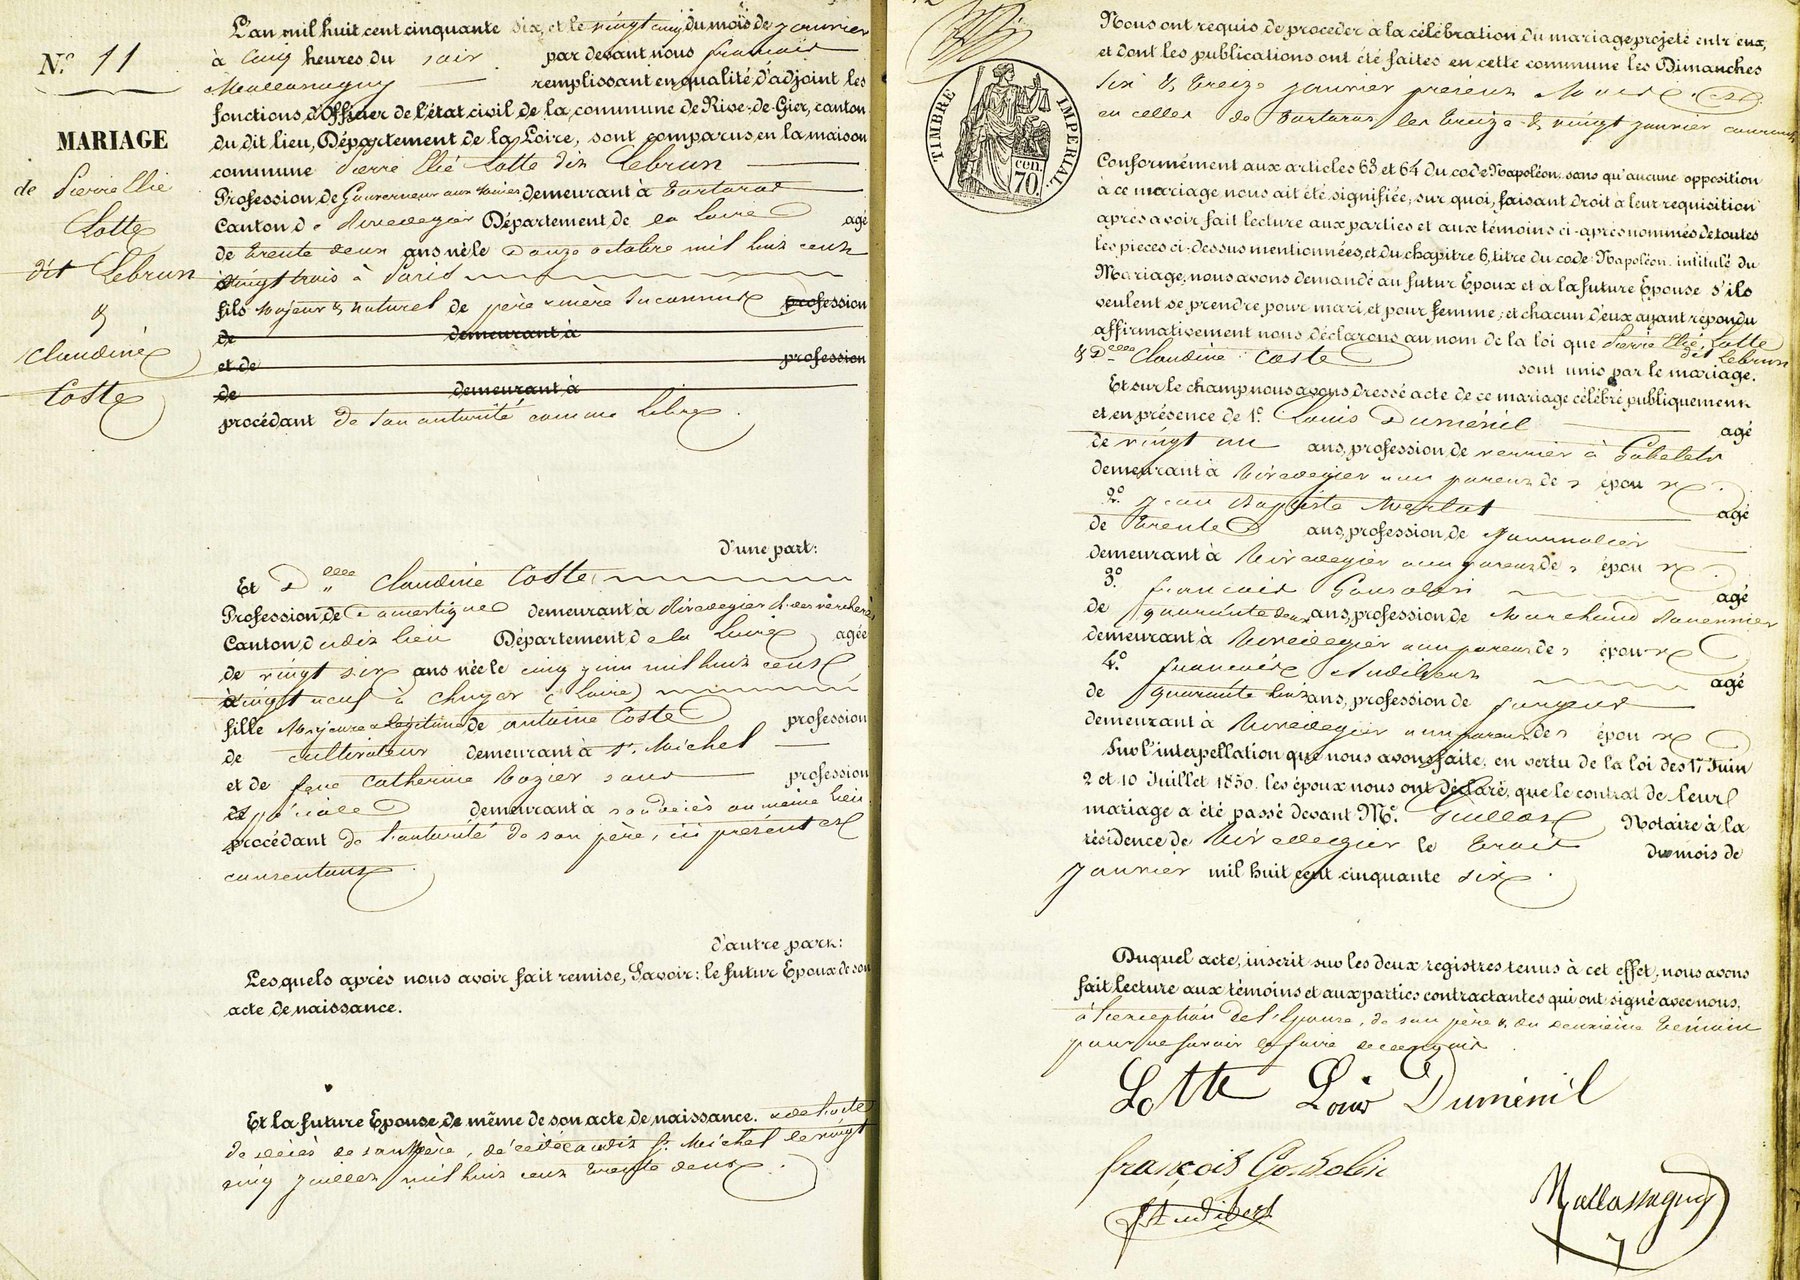 N.o 11
MARIAGE
de Pierre Elie
Lotte
dit Lebrun
&
Claudine
Coste
L'an mil huit cent cinquante six, et le vingt cinq du mois de janvier
à cinq heures du soir par devant nous francois
Mallassagny remplissant en qualité d'adjoint les
fonctions d'Officier de l'état civil de la commune de Rive-de-Gier, canton
du dit lieu, Département de la Loire, sont comparus en la maison
commune Pierre Elié Lotte dit Lebrun
Profession de Gouverneur aux mines demeurant à Tartaras
Canton de Rivedegier Département de la Loire agé
de trente deux ans né le Douze octobre mil huit cent
vingt trois à Paris
fils Majeur & naturel de père & mère Inconnus profession
de demeurant à
et de profession
de demeurant à
procédant de son autorité comme libre
d'une part:
Et Delle Claudine Coste
Profession de Domestique demeurant à Rivedegier
Canton dudit lieu Département de la Loire agée
de vingt six ans née le cinq juin mil huit cent
vingt neuf à Chuyer (Loire)
fille Majeure & Légitime de antoine Coste profession
de cultivateur demeurant à St. Michel
et de feue Catherine sans profession
spéciale demeurant à son décès au même lieu
procédant de l'autorité de son père, ici présent et
consentant
d'autre part:
Lesquels après nous avoir fait remise, Savoir: le futur Epoux de son
acte de naissance.
Et la future Epouse de même de son acte de naissance. & de l'acte
de décès de sa mère, décédée audit St. Michel le vingt
cinq juillet mil huit cent trente deux.
TIMBRE IMPERIAL
70 cen.
Nous ont requis de procéder à la célébration du mariage projeté entr'eux,
et dont les publications ont été faites en cette commune les Dimanches
six & treize janvier présent Mois &
en celles de Tartaras les treize & vingt janvier courant
Conformément aux articles 63 et 64 du code Napoléon. sans qu'aucune opposition
à ce mariage nous ait été signifiée; sur quoi, faisant droit à leur requisition
après avoir fait lecture aux parties et aux témoins ci-après nommés de toutes
les pieces ci-dessus mentionnées, et du chapitre 6, titre du code Napoléon. intitulé du
Mariage, nous avons demandé au futur Epoux et à la future Epouse s'ils
veulent se prendre pour mari, et pour femme; et chacun d'eux ayant répondu
affirmativement nous déclarons au nom de la loi que Pierre Elié Lotte
dit Lebrun
& Delle Claudine Coste
sont unis par le mariage.
Et sur le champ nous avons dressé acte de ce mariage célébré publiquement
et en présence de 1o. Louis Duménil agé
de vingt un ans, profession de verrier à Gobelets
demeurant à Rivedegier non parent des époux
2o. Jean Baptiste Merlat agé
de trente ans, profession de Journalier
demeurant à Rivedegier non parent des époux
3o. francois Gonsolin agé
de quarante deux ans, profession de Marchand
demeurant à Rivedegier non parent des époux
4o. francois Audibert agé
de quarante huit ans, profession de
demeurant à Rivedegier non parent des époux
Sur l'interpellation que nous avons faite, en vertu de la loi des 17 Juin
2 et 10 Juillet 1850. les époux nous ont déclaré, que le contrat de leur
mariage a été passé devant Me. Notaire à la
résidence de Rivedegier le trois du mois de
Janvier mil huit cent cinquante six.
Duquel acte, inscrit sur les deux registres tenus à cet effet, nous avons
fait lecture aux témoins et aux parties contractantes qui ont signé avec nous,
à l'exception de l'Epouse, de son père & du deuxième témoin
pour ne savoir le faire de ce enquis
Lotte Louis Duménil
françois Gonsolin
f Audibert
Mallassagny